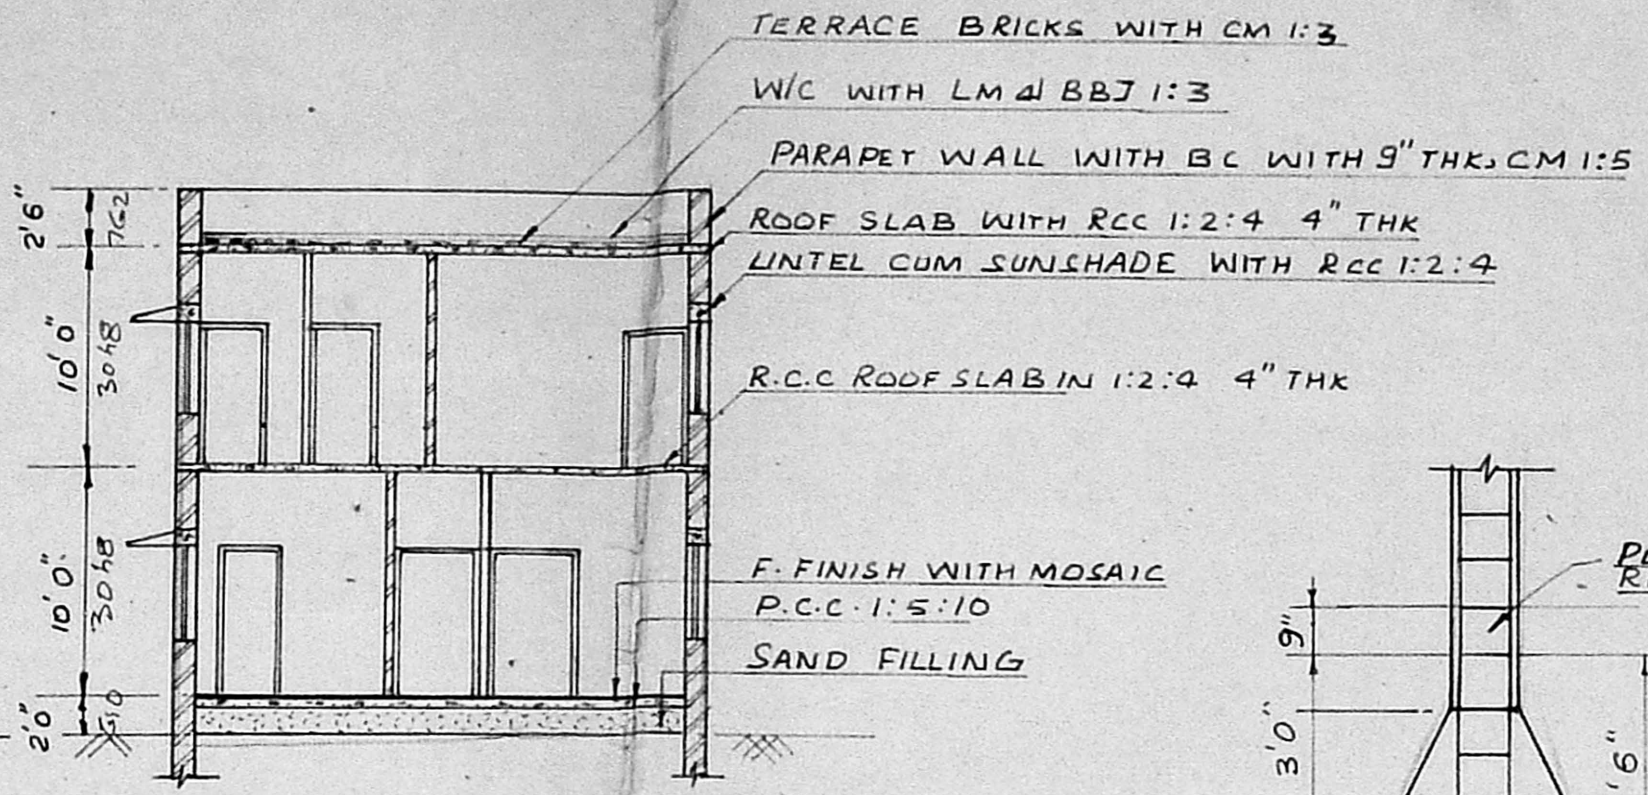 TERRACE BRICKS WITH CM 1:3
W/C WITH LM & BBJ 1:3
PARAPET WALL WITH BC WITH 9" THK, CM 1:5
ROOF SLAB WITH RCC 1:2:4 4" THK
LINTEL CUM SUNSHADE WITH RCC 1:2:4
R.C.C ROOF SLAB IN 1:2:4 4" THK
F. FINISH WITH MOSAIC
P.C.C. 1:5:10
SAND FILLING
2'6"
762
10'0"
3048
10'0"
3048
2'0"
9"
3'0"
6"